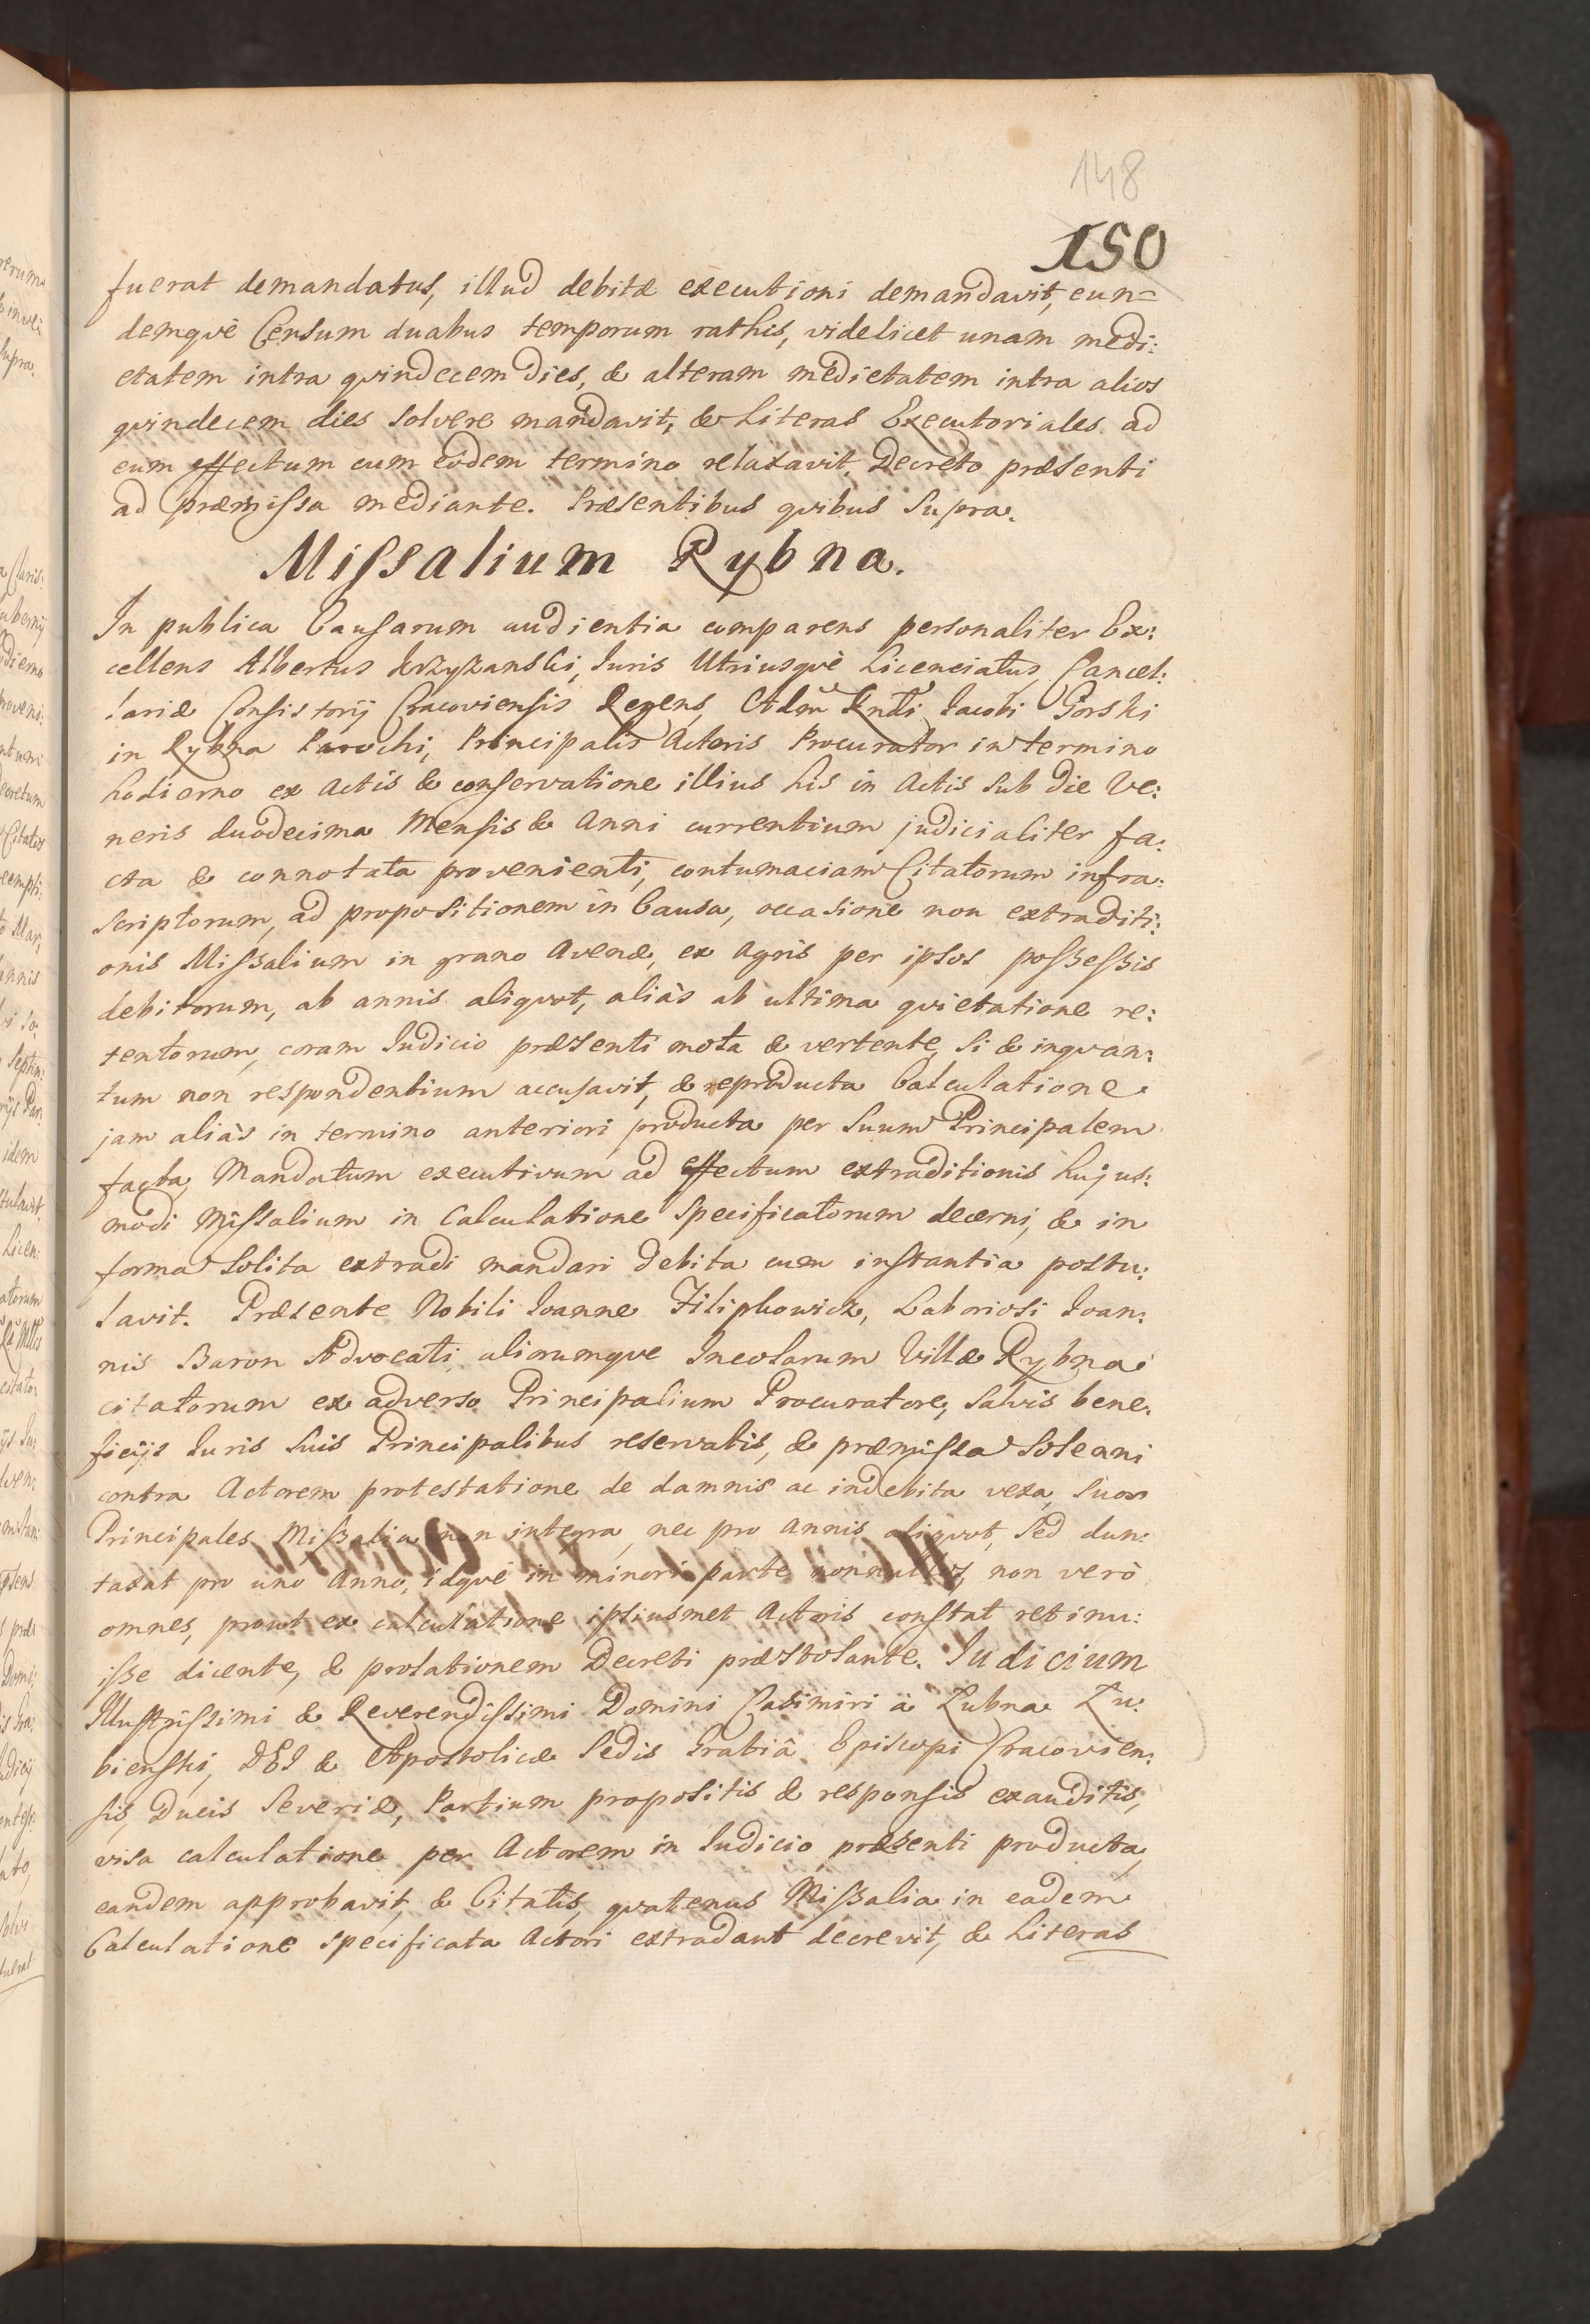 148
150
fuerat demandatus, illud debitæ executioni demandavit, eun=
demqvè Censum duabus temporum rathis, videlicet unam medi:
etatem intra qvindecem dies, & alteram medietatem intra alios
qvindecem dies solvere mandavit, & Literas Executoriales ad
eum effectum cum eodem termino relaxavit. Decreto præsenti
ad præmissa mediante. Præsentibus qvibus Supra.
Missalium Rybna.
In publica Causarum audientia comparens personaliter Ex:
cellens Albertus Krzyzanski, Iuris Utriusqvè Licenciatus, Cancel:
lariæ Consistorij Cracoviensis Regens, Adm Rndi Iacobi Gorski
in Rybna Parochi, Principalis Actoris Procurator in termino
hodierno ex Actis & conservatione illius his in Actis sub die Ve:
neris duodecima Mensis & Anni currentium judicialiter fa:
cta & connotata provenienti, contumaciam Citatorum infra:
scriptorum, ad propositionem in Causa, occasione non extraditi:
onis Missalium in grano Avenæ, ex Agris per ipsos possessis
debitorum, ab annis aliqvot, aliàs ab ultima qvietatione re:
tentorum, coram Iudicio præsenti mota & vertente, si & inqvan:
tum non respondentium accusavit, & reproducta Calculatione
jam aliàs in termino anteriori producta per Suum Principalem
facta, Mandatum executivum ad effectum extraditionis hujus:
modi Missalium in Calculatione Specificatorum decerni, & in
forma solita extradi mandari debita cum instantia postu:
lavit. Præsente Nobili Ioanne Filipkowicz, Laboriosi Ioan:
nis Baron Advocati aliorumqve Incolarum Villæ Rybna
citatorum ex adverso Principalium Procuratore, salvis bene:
ficijs Iuris Suis Principalibus reservatis, & præmissa Solenni
contra Actorem protestatione de damnis ac indebita vexa, Suos
Principales Missalia non integra, nec pro Annis aliqvot, sed dun:
taxat pro uno Anno, idqvè in minori parte nonnullos, non verò
omnes, prout ex calculatione ipsiusmet Actoris constat retinu:
isse dicente, & prolationem Decreti præstolante. Iudicium
Illustrissimi & Reverendissimi Domini Casimiri à Lubna Lu:
bienski, DEI & Apostolicæ Sedis Gratiâ Episcopi Cracovien:
sis, Ducis Severiæ, Partium propositis & responsis exauditis,
visa calculatione per Actorem in Iudicio præsenti producta,
eandem approbavit, & Citatis, qvatenus Missalia in eadem
Calculatione specificata Actori extradant decrevit, & Literas